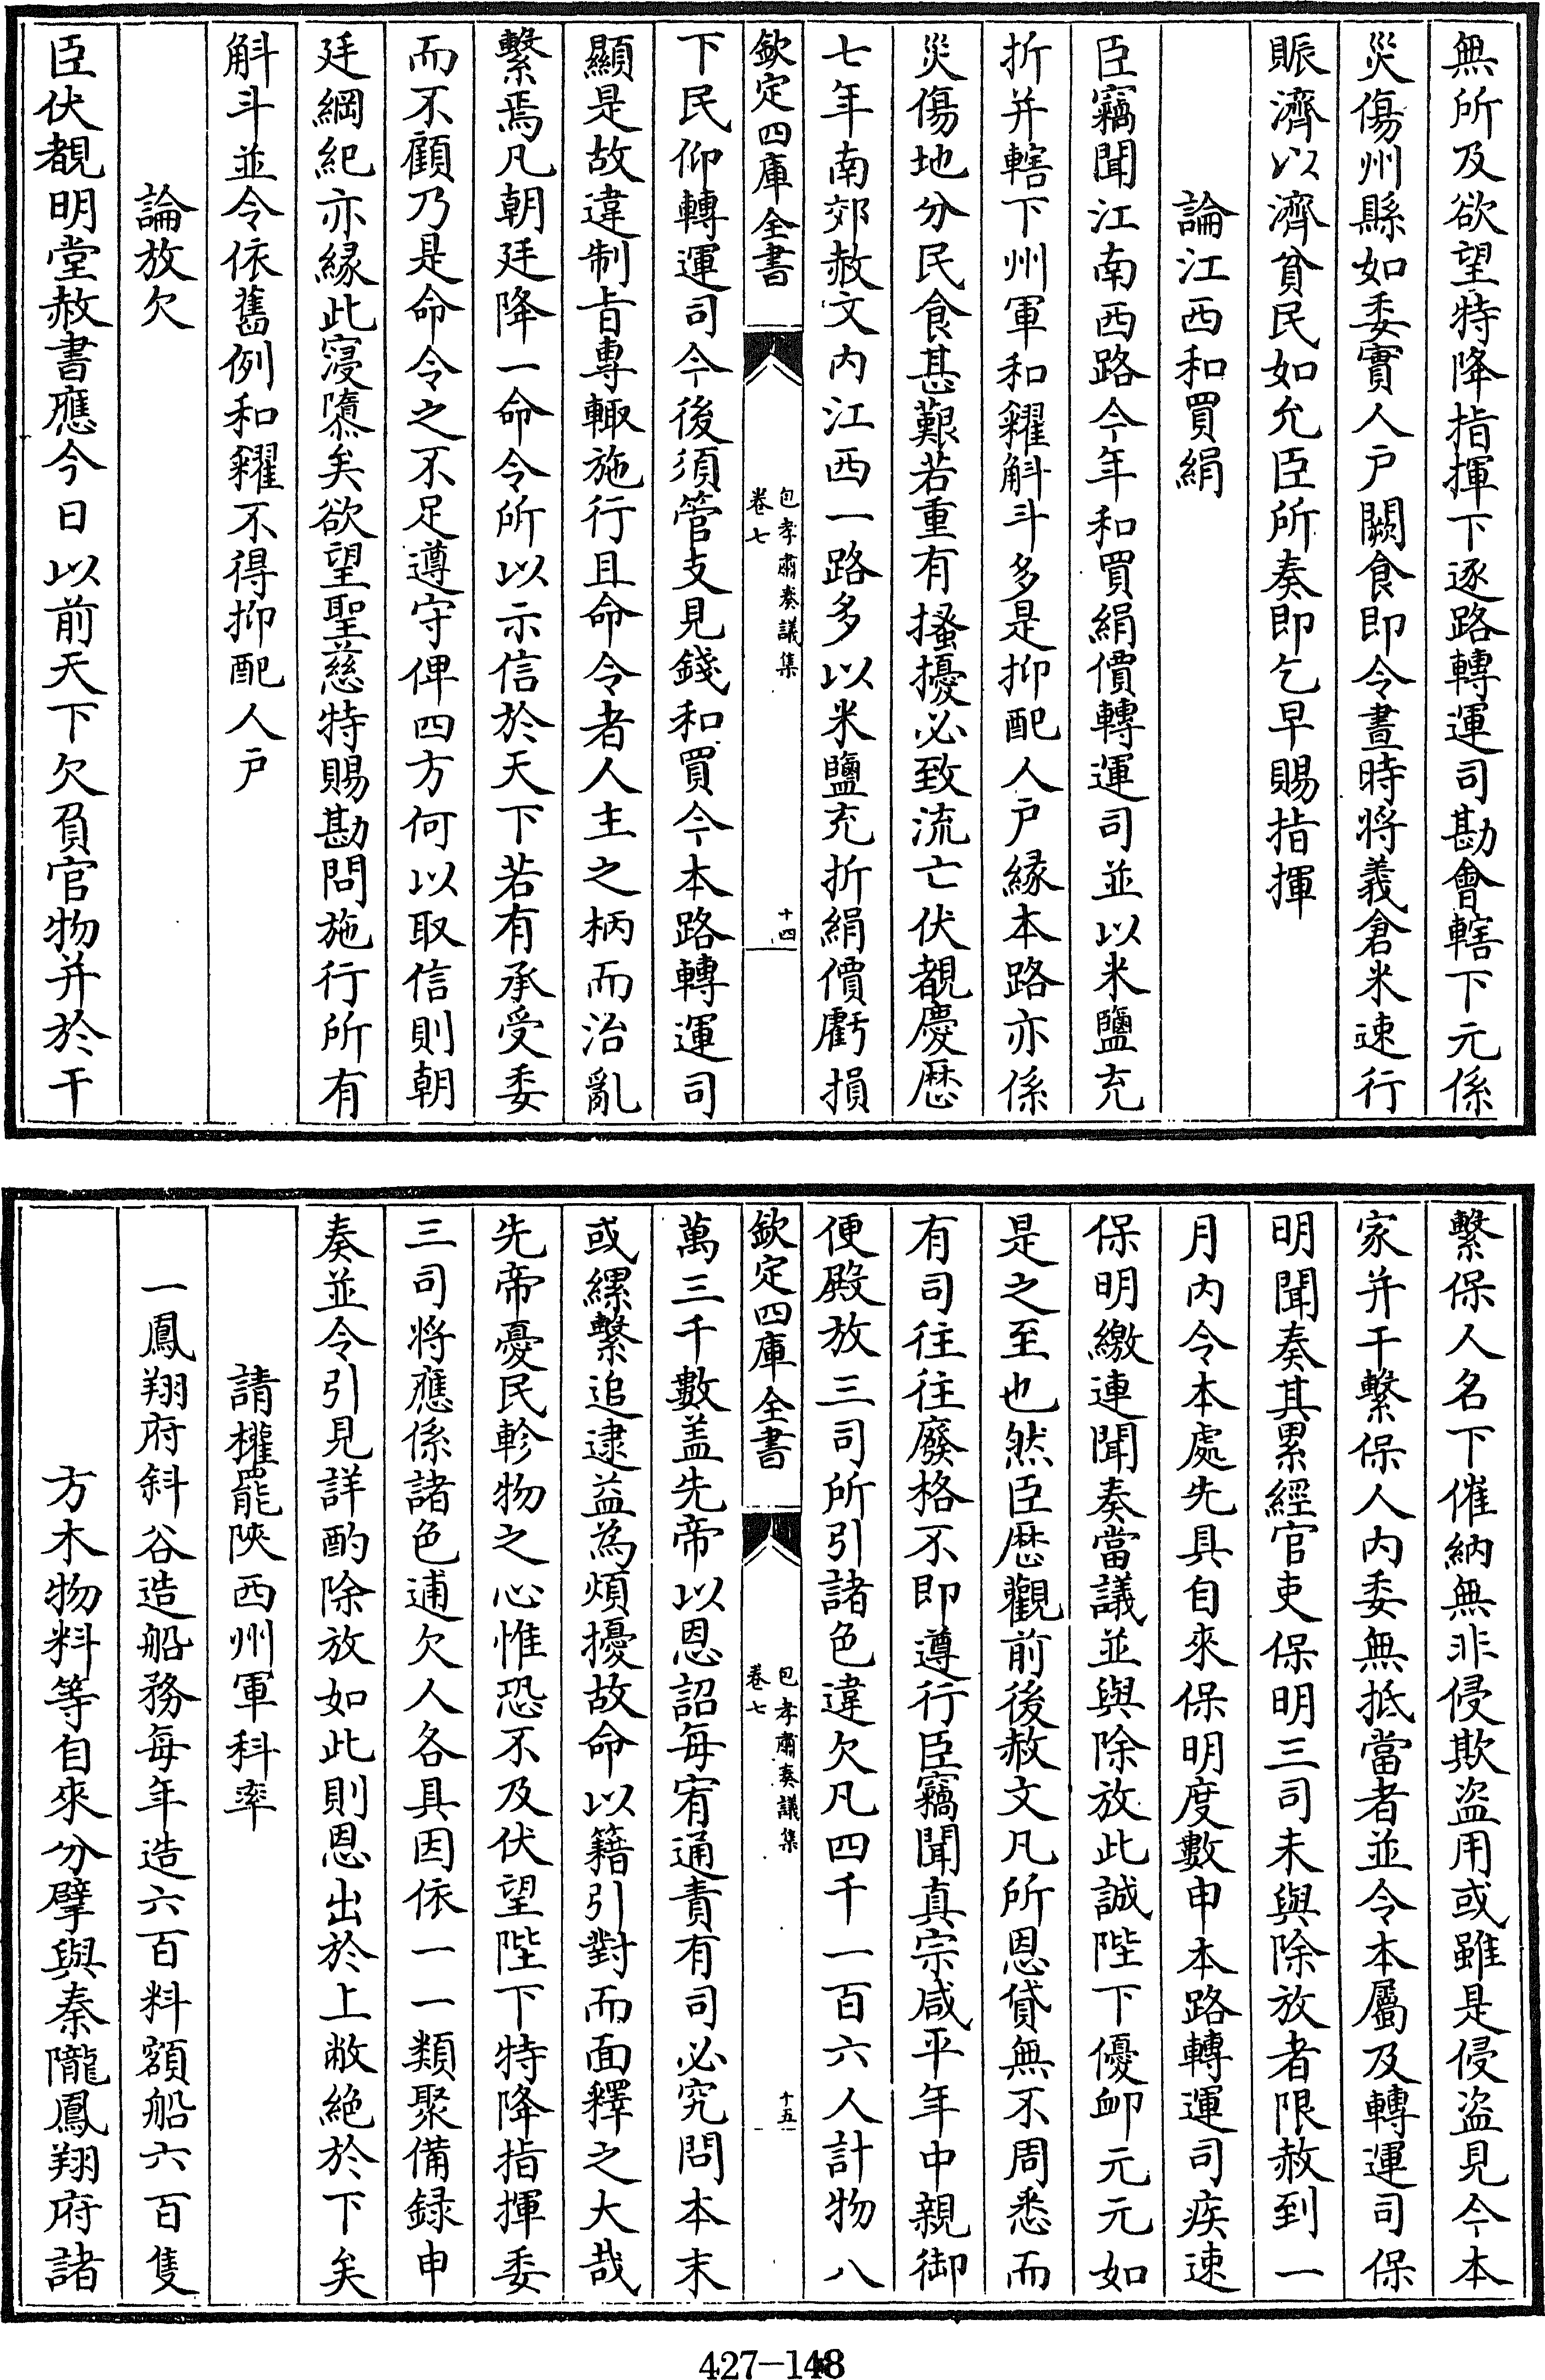 無所及欲望特降指揮下逐路轉運司勘會轄下元係
災傷州縣如委實人户闕食即令晝時將義倉米速行
賑濟以濟貧民如允臣所奏即乞早賜指揮
論江西和買絹
臣竊聞江南西路今年和買絹價轉運司並以米鹽充
折并轄下州軍和糴斛斗多是抑配人户緣本路亦係
災傷地分民食甚艱若重有搔擾必致流亡伏覩慶厯
七年南郊赦文内江西一路多以米鹽充折絹價虧損
欽定四庫全書
包孝肅奏議集
卷七
十四
下民仰轉運司今後須管支見錢和買今本路轉運司
顯是故違制㫖專輙施行且命令者人主之柄而治亂
繫焉凡朝廷降一命令所以示信於天下若有承受委
而不顧乃是命令之不足遵守俾四方何以取信則朝
廷綱紀亦緣此寖隳矣欲望聖慈特賜勘問施行所有
斛斗並令依舊例和糴不得抑配人户
論放欠
臣伏覩明堂赦書應今日以前天下欠負官物并於干
繫保人名下催納無非侵欺盗用或雖是侵盗見今本
家并干繫保人内委無抵當者並令本屬及轉運司保
明聞奏其累經官吏保明三司未與除放者限赦到一
月内令本處先具自來保明度數申本路轉運司疾速
保明繳連聞奏當議並與除放此誠陛下優䘏元元如
是之至也然臣厯觀前後赦文凡所恩貸無不周悉而
有司往往廢格不即遵行臣竊聞真宗咸平年中親御
便殿放三司所引諸色違欠凡四千一百六人計物八
欽定四庫全書
包孝肅奏議集
卷七
十五
萬三千數盖先帝以恩詔每宥通責有司必究問本末
或縲繫追逮益為煩擾故命以籍引對而面釋之大哉
先帝憂民軫物之心惟恐不及伏望陛下特降指揮委
三司將應係諸色逋欠人各具因依一一類聚備録申
奏並令引見詳酌除放如此則恩出於上敝絶於下矣
請權罷陜西州軍科率
一鳳翔府斜谷造船務每年造六百料額船六百隻
方木物料等自來分擘與秦隴鳳翔府諸
427-148